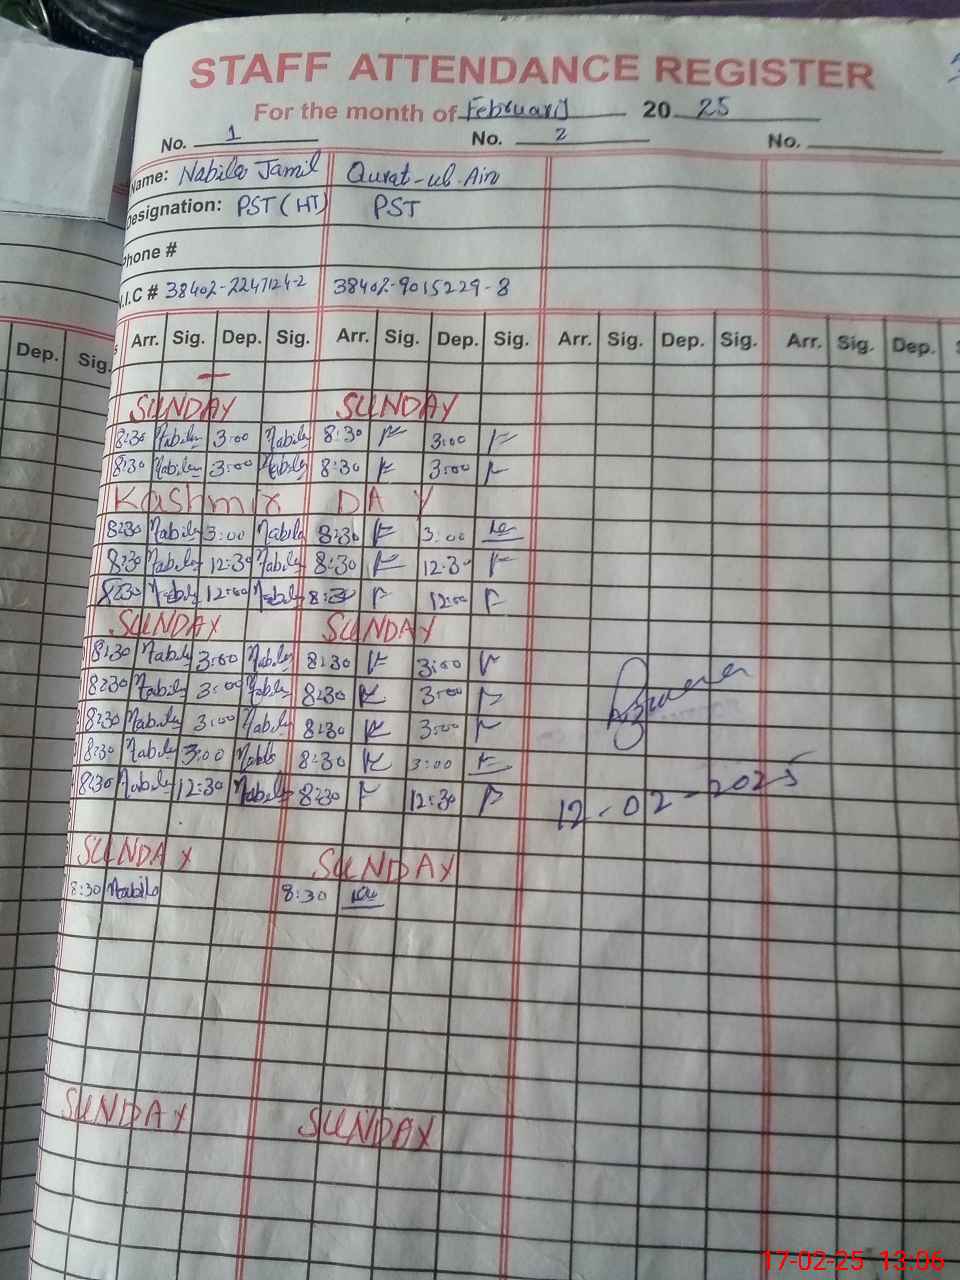 STAFF ATTENDANCE REGISTER
For the month of February 20 25
No. 1 No. 2 No.
Name: Nabila Jamil Qurat-ul-Ain
Designation: PST (HT) PST
Phone #
N.I.C # 38402-2247124-2 38402-9015229-8
Dep. Sig. Arr. Sig. Dep. Sig. Arr. Sig. Dep. Sig. Arr. Sig. Dep. Sig. Arr. Sig. Dep.
SUNDAY SUNDAY
8:30 Nabila 3:00 Nabila 8:30 3:00
8:30 Nabila 3:00 Nabila 8:30 3:00
Kashmir DAY
8:30 Nabila 3:00 Nabila 8:30 3:00
8:30 Nabila 12:30 Nabila 8:30 12:30
8:30 Nabila 12:00 Nabila 8:30 12:00
SUNDAY SUNDAY
8:30 Nabila 3:00 Nabila 8:30 3:00
8:30 Nabila 3:00 Nabila 8:30 3:00
8:30 Nabila 3:00 Nabila 8:30 3:00
8:30 Nabila 3:00 Nabila 8:30 3:00
8:30 Nabila 12:30 Nabila 8:30 12:30
12-02-2025
SUNDAY SUNDAY
8:30 Nabila 8:30
SUNDAY SUNDAY
17-02-25 13:06